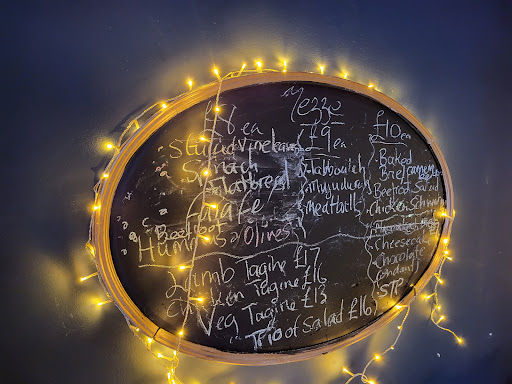 Mezze
£8 ea
Stuffed Vine leaves
Spinach
Flatbread
Falafel
Beetroot
Humus & Olives
£9 ea
Tabbouleh
Mujudurah
Meatballs
£10 ea
Baked
Beetroot Salad
Chicken
Cheesecake
Chocolate
Fondant
STP
Lamb Tagine £17
Chicken Tagine £16
Veg Tagine £13
Trio of Salad £16